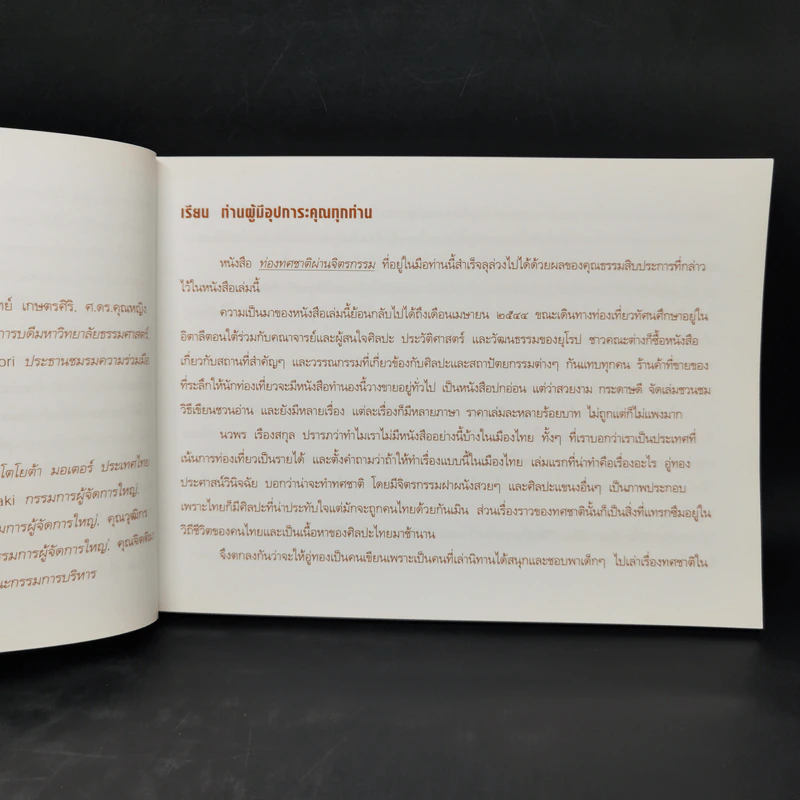 ทย์ เกษตรศิริ, ศ.ดร.คุณหญิง
การบดีมหาวิทยาลัยธรรมศาสตร์,
ori ประธานชมรมความร่วมมือ
โตโยต้า มอเตอร์ ประเทศไทย
aki กรรมการผู้จัดการใหญ่,
มการผู้จัดการใหญ่, คุณวุฒิกร
รรมการผู้จัดการใหญ่,
ณะกรรมการบริหาร
เรียน ท่านผู้มีอุปการะคุณทุกท่าน
หนังสือ ท่องทศชาติผ่านจิตรกรรม ที่อยู่ในมือท่านนี้สำเร็จลุล่วงไปได้ด้วยผลของคุณธรรมสิบประการที่กล่าว
ไว้ในหนังสือเล่มนี้
ความเป็นมาของหนังสือเล่มนี้ย้อนกลับไปได้ถึงเดือนเมษายน ๒๕๔๔ ขณะเดินทางท่องเที่ยวทัศนศึกษาอยู่ใน
อิตาลีตอนใต้ร่วมกับคณาจารย์และผู้สนใจศิลปะ ประวัติศาสตร์ และวัฒนธรรมของยุโรป ชาวคณะต่างก็ซื้อหนังสือ
เกี่ยวกับสถานที่สำคัญๆ และวรรณกรรมที่เกี่ยวข้องกับศิลปะและสถาปัตยกรรมต่างๆ กันแทบทุกคน ร้านค้าที่ขายของ
ที่ระลึกให้นักท่องเที่ยวจะมีหนังสือทำนองนี้วางขายอยู่ทั่วไป เป็นหนังสือปกอ่อน แต่ว่าสวยงาม กระดาษดี จัดเล่มชวนชม
วิธีเขียนชวนอ่าน และยังมีหลายเรื่อง แต่ละเรื่องก็มีหลายภาษา ราคาเล่มละหลายร้อยบาท ไม่ถูกแต่ก็ไม่แพงมาก
นวพร เรืองสกุล ปรารภว่าทำไมเราไม่มีหนังสืออย่างนี้บ้างในเมืองไทย ทั้งๆ ที่เราบอกว่าเราเป็นประเทศที่
เน้นการท่องเที่ยวเป็นรายได้ และตั้งคำถามว่าถ้าให้ทำเรื่องแบบนี้ในเมืองไทย เล่มแรกที่น่าทำคือเรื่องอะไร อู่ทอง
ประศาสน์วินิจฉัย บอกว่าน่าจะทำทศชาติ โดยมีจิตรกรรมฝาผนังสวยๆ และศิลปะแขนงอื่นๆ เป็นภาพประกอบ
เพราะไทยก็มีศิลปะที่น่าประทับใจแต่มักจะถูกคนไทยด้วยกันเมิน ส่วนเรื่องราวของทศชาตินั้นก็เป็นสิ่งที่แทรกซึมอยู่ใน
วิถีชีวิตของคนไทยและเป็นเนื้อหาของศิลปะไทยมาช้านาน
จึงตกลงกันว่าจะให้อู่ทองเป็นคนเขียนเพราะเป็นคนที่เล่านิทานได้สนุกและชอบพาเด็กๆ ไปเล่าเรื่องทศชาติใน